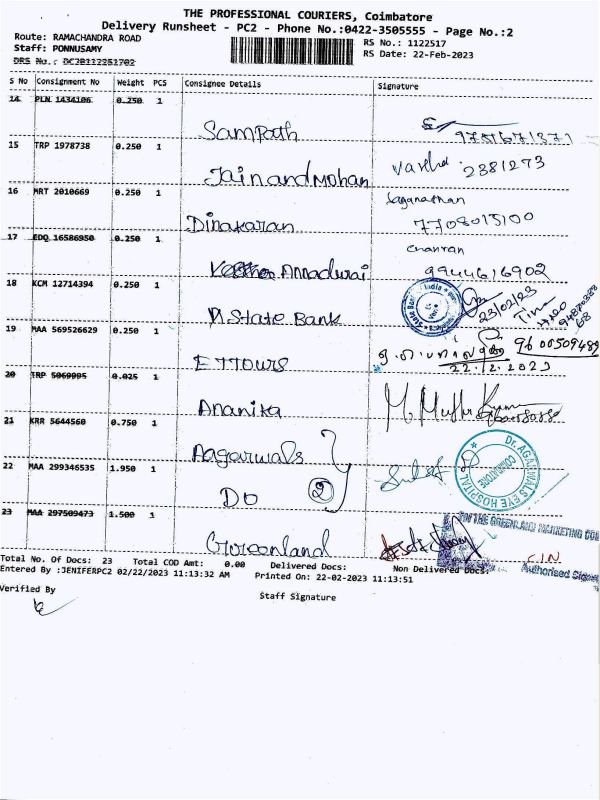 THE PROFESSIONAL COURIERS, Coimbatore
Delivery Runsheet - PC2 - Phone No.:0422-3505555 - Page No.:2
Route: RAMACHANDRA ROAD
RS No.: 1122517
Staff: PONNUSAMY
RS Date: 22-Feb-2023
DRS No.: DC2B112251702
S No Consignment No Weight PCS Consignee Details Signature
14 PLN 1434106 0.250 1
Sampath 9751671371
15 TRP 1978738 0.250 1
Jainand Mohan 2381273
16 MRT 2010669 0.250 1
Dinakaran 7708015100
17 EDQ 16586950 0.250 1
Annadurai 9944616902
18 KCM 12714394 0.250 1
State Bank 23/02/23
19 MAA 569526629 0.250 1
ETTOURS 9600509489
22.2.2023
20 TRP 5069995 0.025 1
Ananita
21 KRR 5644560 0.750 1
Aagarwals
Dr. AGARWAL'S EYE HOSPITAL
COIMBATORE
22 MAA 299346535 1.950 1
DO 2
23 MAA 297509473 1.500 1
FOR THE GREENLAND MARKETING CO
Greenland
Total No. Of Docs: 23 Total COD Amt: 0.00 Delivered Docs: Non Delivered Docs:
Authorised Signat
Entered By :JENIFERPC2 02/22/2023 11:13:32 AM Printed On: 22-02-2023 11:13:51
Verified By
Staff Signature